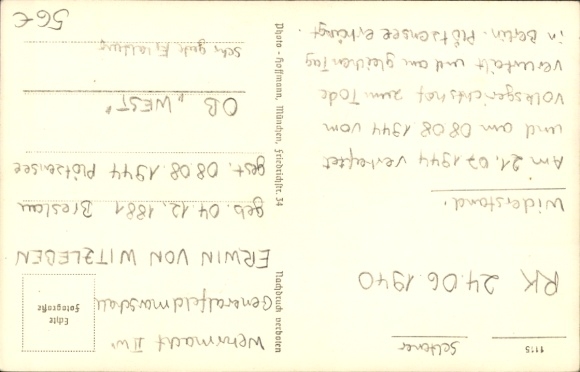 Wehrmacht II W
Generalfeldmarschall
ERWIN VON WITZLEBEN
geb. 04.12.1881 Breslau
gest. 08.08.1944 Plötzensee
OB „WEST“
Sehr gute Erhaltung
56€
Echte
Fotografie
Nachdruck verboten
Photo-Hoffmann, München, Friedrichstr. 34
1115
Seltener
RK 24.06.1940
Widerstand!
Am 21.07.1944 verhaftet
und am 08.08.1944 vom
Volksgerichtshof zum Tode
verurteilt und am gleichen Tag
in Berlin-Plötzensee erhängt.